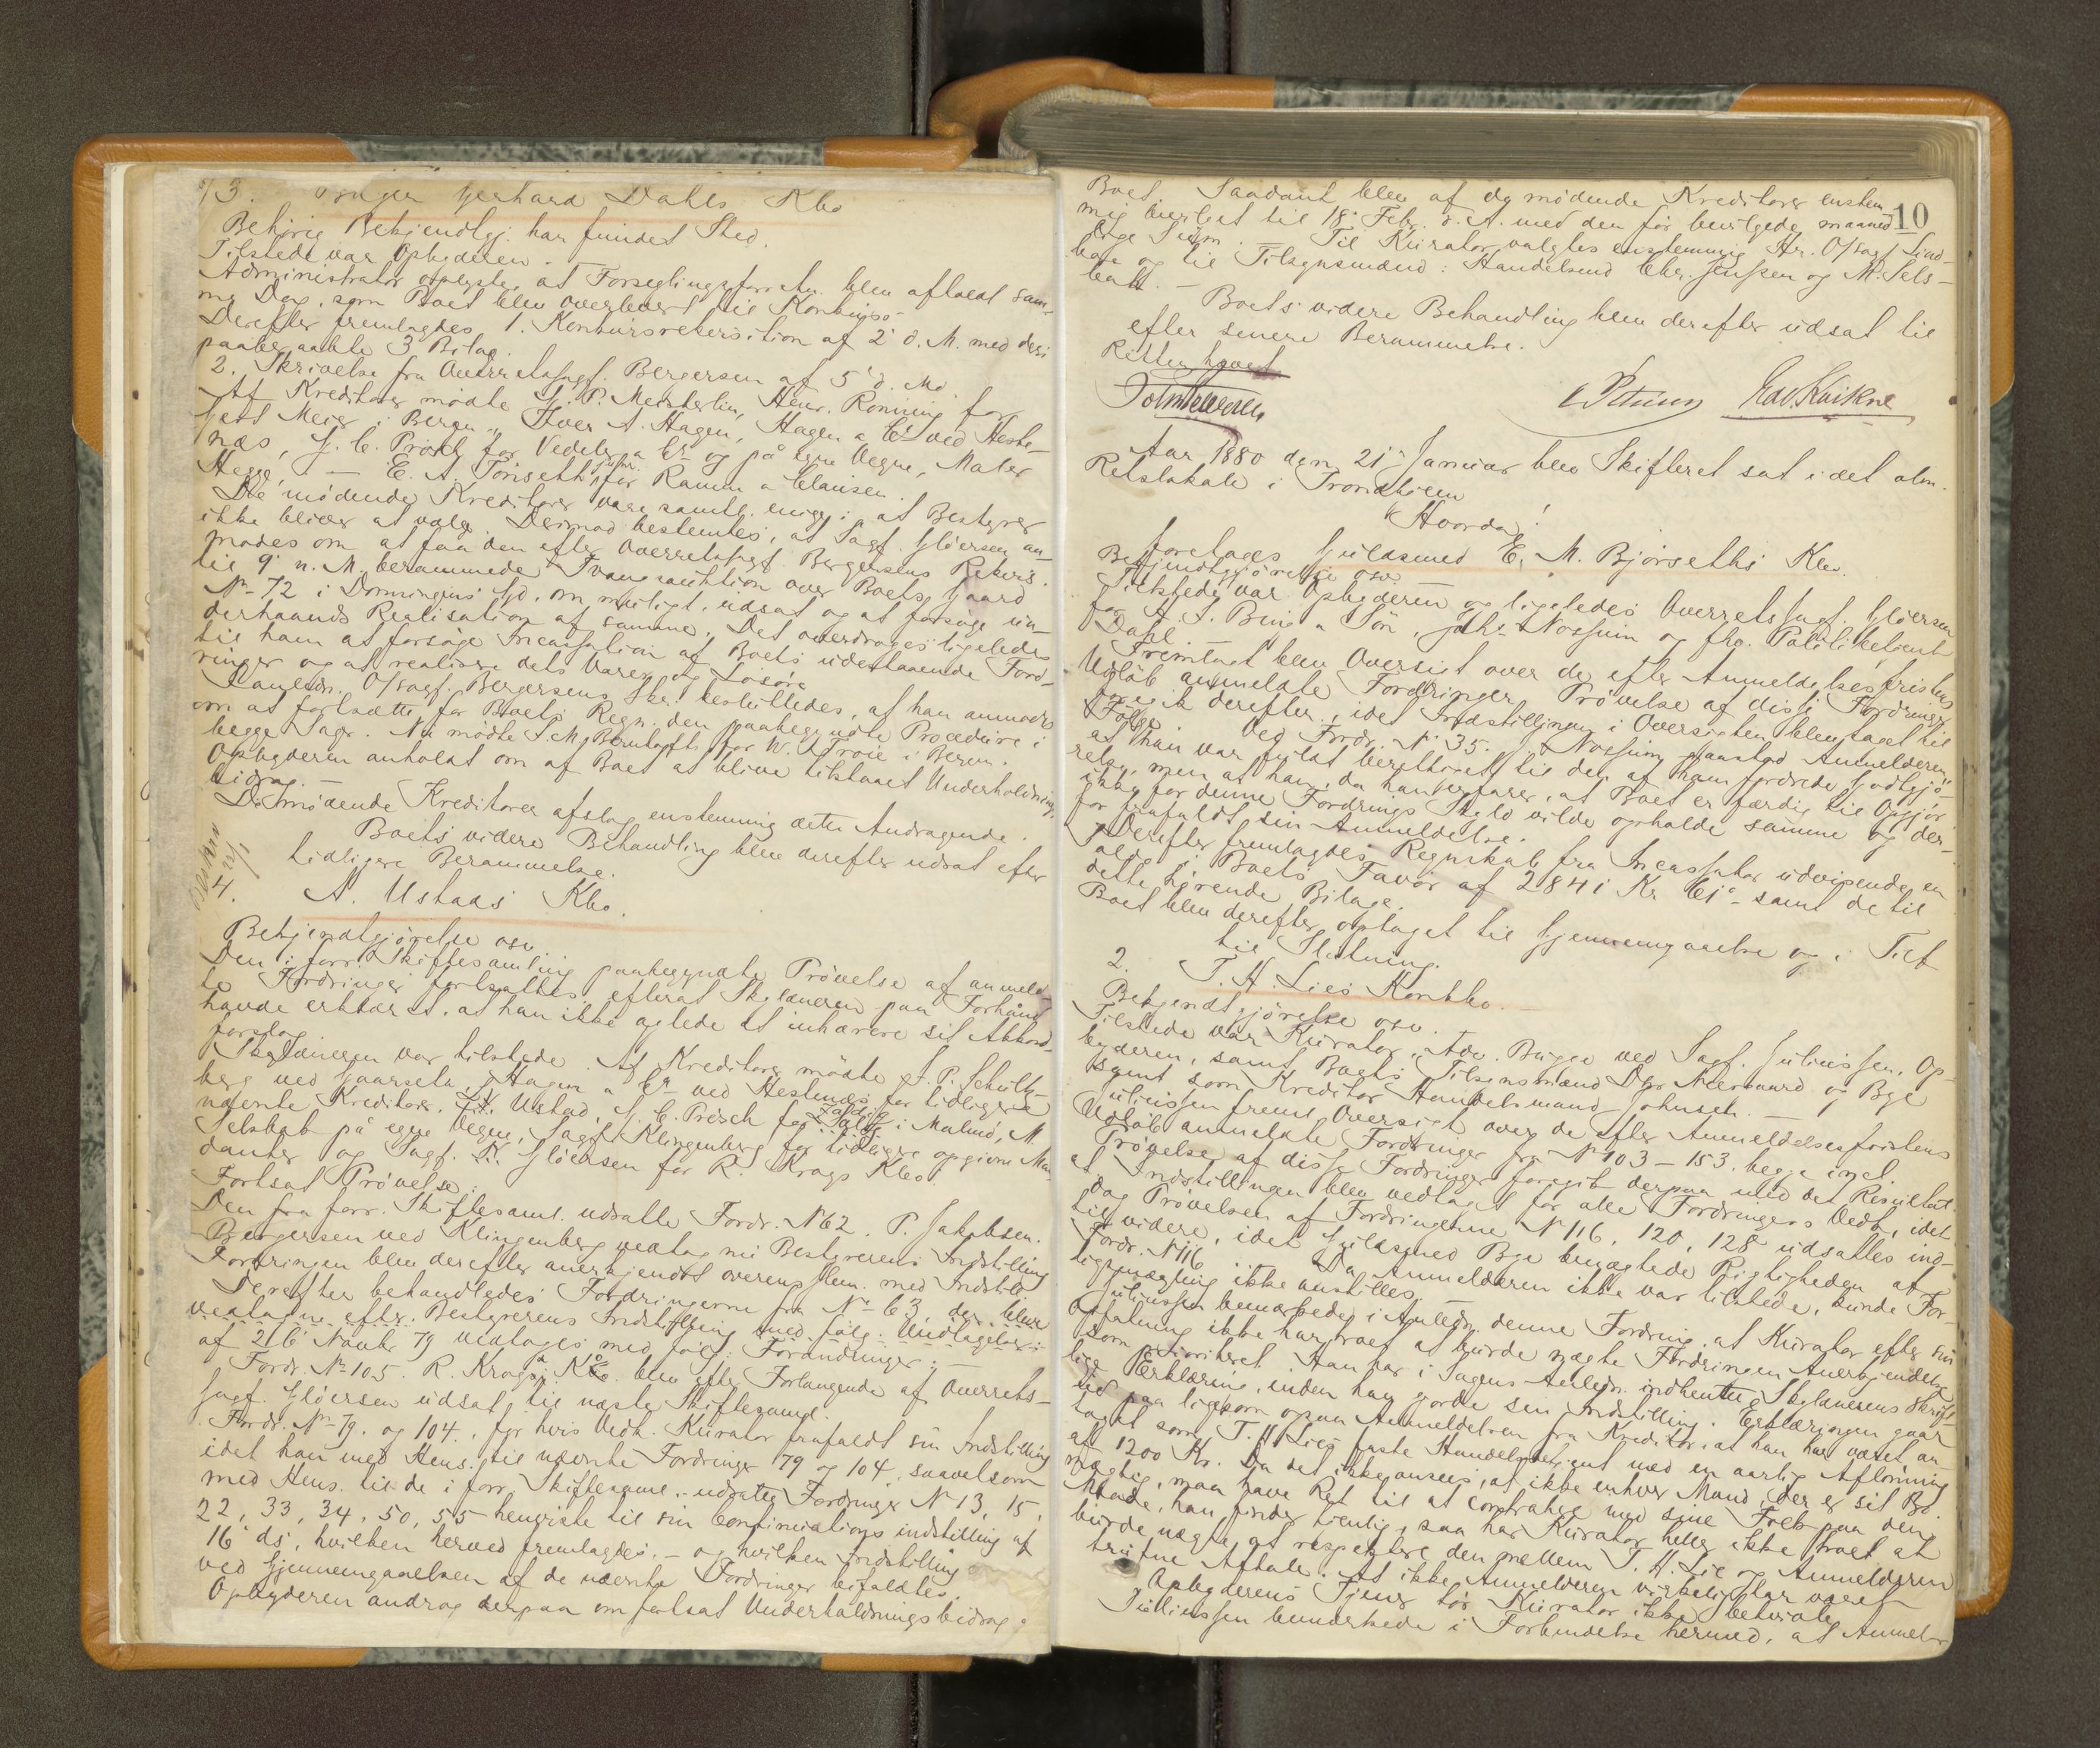 3. Gerhard Dahls Kbo
Behørig Bekjendtgj. har fundet Sted.
Tilstede var Opbyderen.
Administrator oplyste, at Forseglingsforretn. blev afholdt sam-
me Dag, som Boet blev overleveret til Konkurs.-
Derefter fremlagdes 1. Konkursrekvisition af 2' d. M. med deri
paaberaabte 3 Bilag.
2. Skrivelse fra Overretssagf. Bergersen af 5' d. M.
Af Kreditorer mødte G. P. Meisterlin, Henr. Rønning for
Gert Meier i Bergen, Iver A. Hagen, Hagen & Co ved Heste-
næs, J. C. Prösch for Vedeler & Co og på egne Vegne, Maler
Hegge, — E. A. Tönseth jun. for Ramm & Clausen.
De mødende Kreditorer vare samtl. enige i, at Bestyrer
ikke bliver at vælge. Derimod bestemtes, at Sagf. Gløersen an-
modes om at faa den efter Overretssagf. Bergersens Rekvis.
til 9' n. M. berammede Tvangsauktion over Boets Gaard
No 72 i Dronningens Gd. om muligt udsat og at forsøge un-
derhaands Realisation af samme. Det overdrages ligeledes
til ham at forsøge Incassation af Boets udestaaende Ford-
ringer og at realisere dets Varer og Løsøre
I Anledn. O/sagf. Bergersens Skr. besluttedes, at han anmodes
om at fortsætte for Boets Regn. den paabegyndte Procedure i
begge Sager. Nu mødte for W. Troie i Bergen.
Opbyderen anholdt om af Boet at blive tilstaaet Underholdnings-
bidrag. —
De mødende Kreditorer afslog enstemmig dette Andragende.
Boets videre Behandling blev derefter udsat efter
tidligere Berammelse.
4. A. Ustads Kbo.
Bekjendtgjørelse osv.
Den i forr. Skiftesamling paabegyndte Prøvelse af anmeld-
te Fordringer fortsattes, efterat Skyldneren paa Forhånd
havde erklæret, at han ikke agtede at inhærere sit Akkord-
forslag
Skyldneren var tilstede. Af Kreditorer mødte J. P. Schult-
berg ved Gaarseth, Hagen & Co ved Hestenæs for tidligere
nævnte Kreditorer, Ustad, J. C. Prösch for i Malmö, M.
Selskab på egne Vegne, Sagf. Klingenberg for tidligere opgivne Man-
danter og Sagf. K. Gløersen for R. Krogs Kbo.
Fortsat Prøvelse:
Den fra forr. Skiftesaml. udsatte Fordr. No 62. P. Jakobsen.
Bergersen ved Klingenberg vedtog nu Bestyrerens Indstilling
Fordringen blev derefter anerkjendt overensstem. med Indstill.
Derefter behandledes Fordringerne fra No 63, der blev
vedtagne efter Bestyrerens Indstilling med følg. Undtagelser:
af 26' Novbr 79 vedtoges med følg: Forandringer: —
Fordr. No 105. R. Krogs Kbo. blev efter Forlangende af Overrets-
sagf. Gløersen udsat til næste Skiftesaml.
Fordr. No 79. og 104., for hvis Vedk. Kurator frafaldt sin Indstilling
idet han med Hens. til nævnte Fordringer 79 og 104, saavelsom
med Hens. til de i forr. Skiftesaml. udsatte Fordringer No 13, 15,
22, 33, 34, 50, 55 henviste til sin Continuations indstilling af
16' ds., hvilken herved fremlagdes, — og hvilken Indstilling
ved Gjennemgaaelsen af de nævnte Fordringer bifaldtes.
Opbyderen androg derpaa om fortsat Underholdningsbidrag af
10
Boet. Saadant blev af de mødende Kreditorer enstem-
mig bevilget til 18' Febr. d. A. med den før bevilgede maaned-
lige Sum. — Til Kurator valgtes enstemmig Hr. O/sagf Lind-
boe og til Tilsynsmænd: Handelsmd Chr. Jenssen og M. Sels-
bak. —
Boets videre Behandling blev derefter udsat til
efter senere Berammelse.
Retten hævet
Edv. Kvikne
Aar 1880 den 21' Januar blev Skifteret sat i det alm.
Retslokale i Trondhjem
Hvorda!
foretoges Guldsmed E. M. Bjørseths Kbo.
Bekjendtgjørelse osv.
Tilstede var Opbyderen og ligeledes Overretssagf. Gløersen
for A. S. Bing & Søn, Jakt. Nossum og fhv. Politibetjent
Dahl. —
Fremlagt blev Oversigt over de efter Anmeldelsesfristens
Udløb anmeldte Fordringer. Prøvelse af disse Fordringer
foregik derefter, idet Indstillingen i Oversigten blev taget til
Følge. Ved Fordr. No 35. J. Nossum paastod Anmelderen,
at han var fuldt berettiget til den af ham fordrede Godtgjø-
relse, men at han, da han erfarer, at Boet er færdig til Opgjør
ikke for denne Fordrings Skyld vilde opholde samme og der-
for frafaldt sin Anmeldelse.
Derefter fremlagdes Regnskab fra Incassator udvisende en
Saldo i Boets Favør af 2841 Kr 61 ø. samt de til
dette hørende Bilage.
Boet blev derefter optaget til Gjennemgaaelse og i Tilf
til Slutning.
2. T. H. Lies Konkbo.
Bekjendtgjørelse osv.
Tilstede var Kurator, Adv. Bugge ved Sagf. Juliussen, Op-
byderen, samt Boets Tilsynsmænd Dhr Neergaard og Bye
samt som Kreditor Handelsmand Johnsen. —
Juliussen freml. Oversigt over de efter Anmeldelsesfristens
Udløb anmeldte Fordringer fra No 103 — 153. begge incl.
Prøvelse af disse Fordringer foregik derpaa med det Resultat
at Indstillingen blev vedtaget for alle Fordringers Vedk., idet
dog Prøvelsen af Fordringerne No 116, 120, 128 udsattes ind-
til videre, idet Guldsmed Bye benægtede Rigtigheden af
Fordr. No 116. Da Anmelderen ikke var tilstede, kunde For-
ligsmægling ikke anstilles.
Juliussen bemærkede i Anledn. denne Fordring, at Kurator efter sin
Opfatning ikke har troet at burde nægte Fordringen Anerkjendelse
som prioriteret. Han har i Sagens Anledn. indhentet Skyldnerens skrift-
lige Erklæring, inden han gjorde sin Indstilling. Erklæringen gaar
ud paa ligesom ogsaa Anmeldelsen fra Kreditor, at han har været an-
taget som T. H. Lies faste Handelsbetjent med en aarlig Aflønning
af 1200 Kr. Da det ikke ansees, at ikke enhver Mand, der er sit Bo
mægtig, maa have Ret til at contrahere med sine Folk paa den
Maade, han finder tjenlig, saa har Kurator heller ikke troet at
burde nægte at respektere den mellem T. H. Lie og Anmelderen
trufne Aftale. At ikke Anmelderen virkelig har været
Opbyderens Tjener tør Kurator ikke betvivle.
Julliussen bemærkede i Forbindelse hermed, at Anmel-